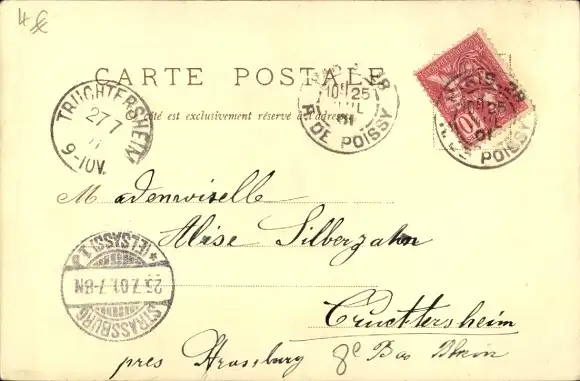 4 €
CARTE POSTALE
Ce côté est exclusivement réservé à l'adresse
TRUCHTERSHEIM
27 7
9-10V.
PARIS - 28
10H 25
JUIL
01
R. DE POISSY
PARIS - 28
25
01
R. DE POISSY
10
Mademoiselle
Alise Silberzahn
STRASSBURG
25.7.01.7-8N
* (ELSASS) 1.
Truchtersheim
pres Strassburg
Bas Rhein